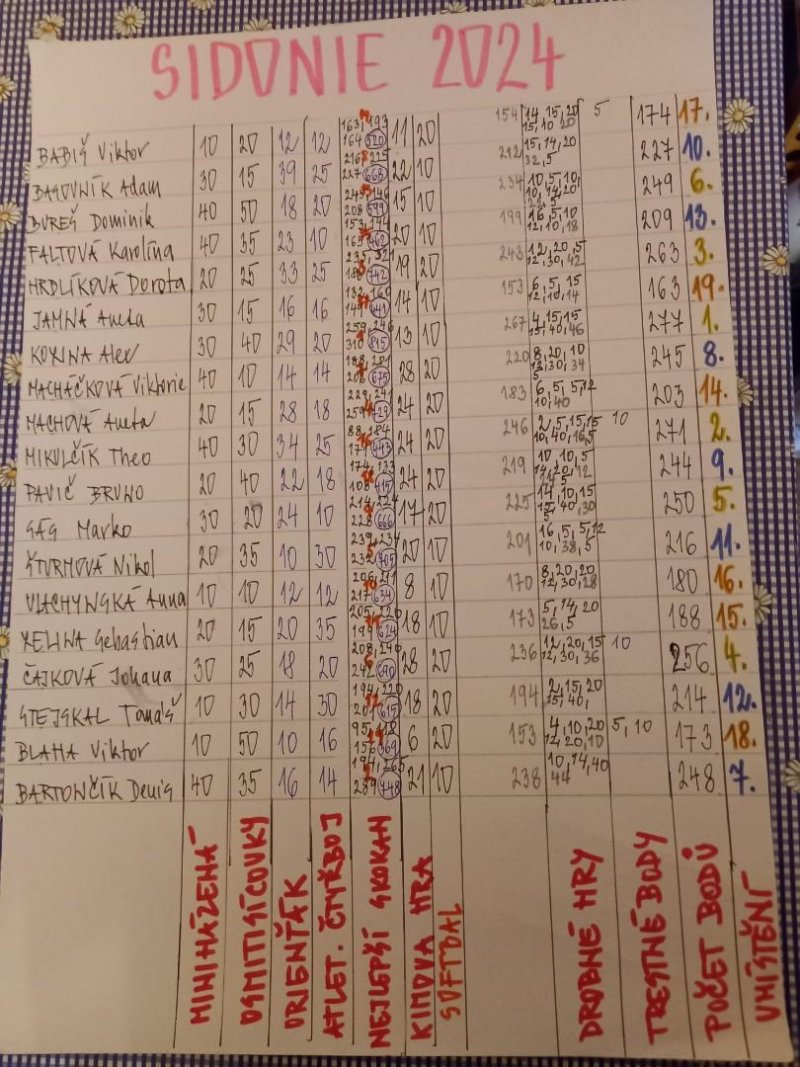 SIDONIE 2024
BABIŠ Viktor 10 20 12 12 163, 193 164 520 11 20 154 14, 15, 20 15, 10 20 5 174 17.
BAŤOVNÍK Adam 30 15 39 25 216 225 227 668 22 10 212 15, 14, 20 32, 5 227 10.
BUREŠ Dominik 40 50 18 20 15 10 234 10, 5, 10, 10, 14, 20 249 6.
FALTOVÁ Karolína 40 35 23 10 462 20 10 199 16, 5, 10 12, 10, 18 209 13.
HRDLÍKOVÁ Dorota 20 25 33 25 19 20 243 12, 20, 5 12, 30, 42 263 3.
JAMNÁ Aneta 30 15 16 16 14 10 153 6, 5, 15 12, 10, 14 163 19.
30 40 29 20 259 246 310 815 13 10 267 4, 15, 15 15, 40, 46 277 1.
MACHÁČKOVÁ Viktorie 40 10 14 14 675 28 20 220 8, 20, 10 12, 30, 34 5 245 8.
MACHOVÁ Aneta 20 15 28 18 24 20 183 6, 5, 5, 12 10, 40 203 14.
MIKULČÍK Theo 40 30 34 25 88, 184 171 443 24 20 246 2, 5, 15, 15 10, 40, 16, 5 10 271 2.
PAVIČ BRUNO 20 40 22 18 108 415 24 20 219 10, 10, 5 14, 20, 12 244 9.
Marko 30 20 24 10 214, 224 228 666 17 20 225 14, 10, 15 15, 40, 30 250 5.
ŠTURMOVÁ Nikol 20 35 10 30 239, 234 232 705 20 10 201 16, 5, 5, 12 10, 38, 5 216 11.
VLACHYNSKÁ Anna 10 10 12 12 206, 211 217 634 8 10 170 8, 20, 20 12, 30, 28 180 16.
XELINA Sebastian 20 15 20 35 205, 220 199 624 18 10 173 5, 14, 20 26, 5 188 15.
ČAJKOVÁ Johana 30 25 18 20 208, 240 242 690 28 20 236 12, 20, 15 12, 30, 36 10 256 4.
STEJSKAL Tomáš 10 30 14 30 194, 220 201 615 18 20 194 2, 15, 20 15, 40, 214 12.
BLAHA Viktor 10 50 10 16 95, 156 369 6 20 153 4, 10, 20 12, 20, 10 5, 10 173 18.
BARTONČÍK Denis 40 35 16 14 194, 265 289 748 21 10 238 10, 14, 40 44 248 7.
MINIHÁZENÁ
OSMITISÍCOVKY
ORIENŤÁK
ATLET. ČTYŘBOJ
NEJLEPŠÍ SKOKAN
KIMOVA HRA
SOFTBAL
DROBNÉ HRY
TRESTNÉ BODY
POČET BODŮ
UMÍSTĚNÍ